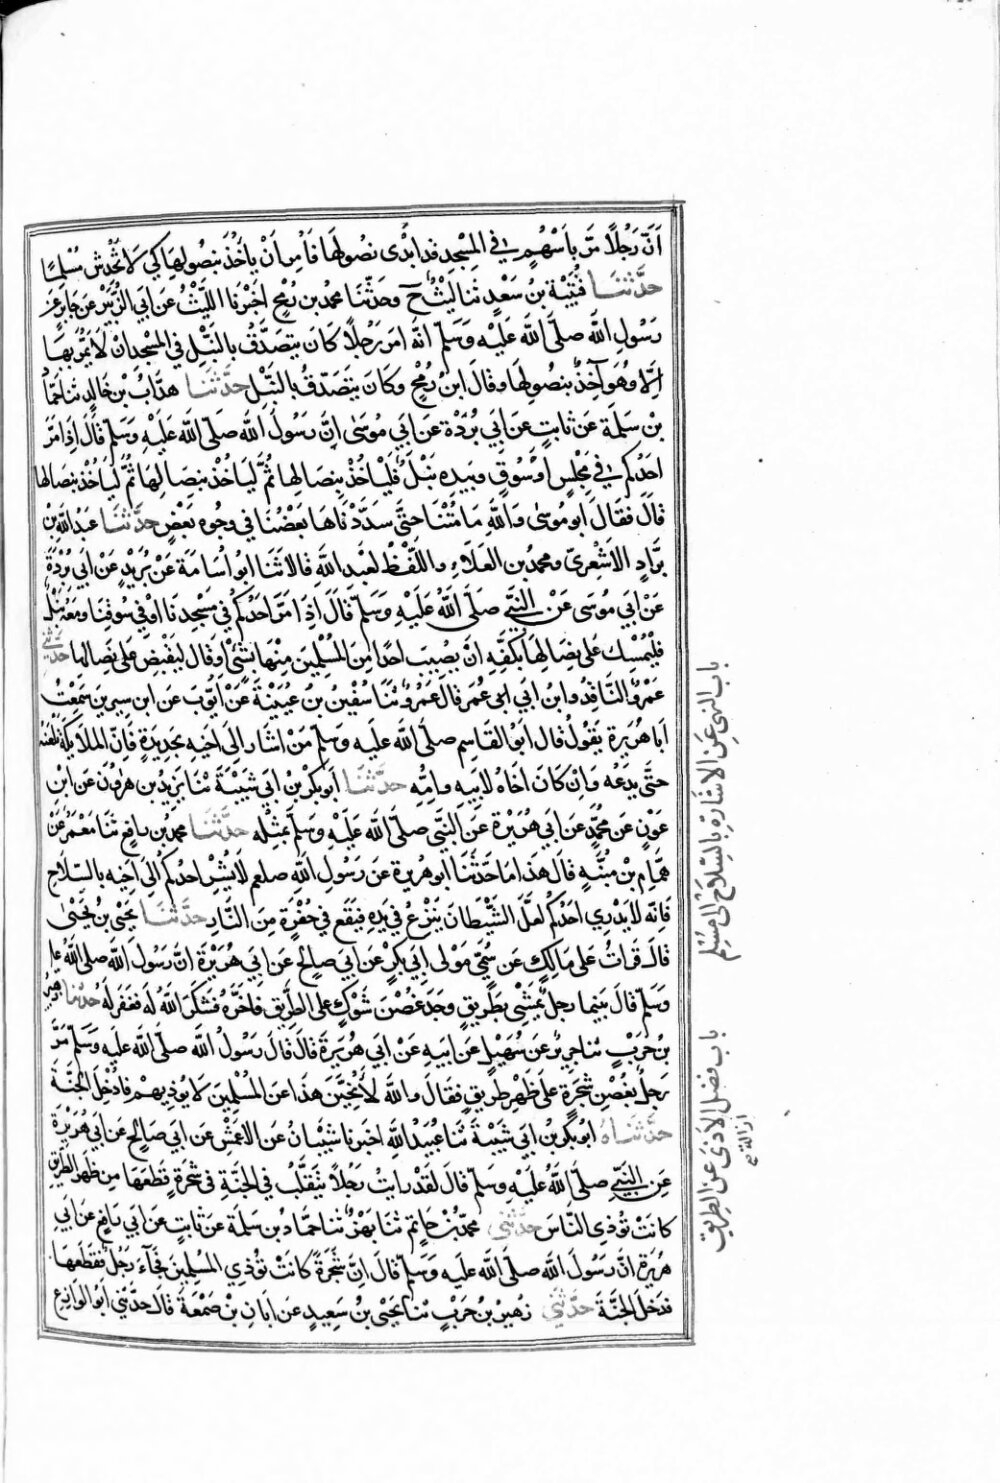 اَنَّ رَجُلاً مَرَّ بِاَسْهُمٍ فِي المَسْجِدِ قَدْ اَبْدَى نُصُولَهَا فَاُمِرَ اَنْ يَأخُذَ بِنُصُولِهَا كَيْ لَا تَخْدِشَ مُسْلِمًا
حَدَّثَنَا قُتَيْبَة بْن سَعِيْدٍ ثنا لَيْثٌ ح وحَدّثَنَا محمد بن رُمْحٍ اخْبَرَنا اللَّيْثُ عَن اَبي الزُّبَيْر عَن جَابِرٍ عَن
رَسُولِ اللهِ صَلَّى اللهُ عَلَيْهِ وَسَلَّمَ انَّه امَرَ رَجُلاً كَانَ يَتَصَدَّقُ بالنَّبْلِ في المَسْجِدِ اَنْ لَا يَمُرَّ بِهَا
اِلَّا وهُوَ آخِذٌ بِنُصُولِهَا وقَالَ ابنُ رُمْحٍ وكَانَ يَتَصَدّقُ بالنَّبْلِ حَدَّثَنَا هدَّابُ بْن خَالِدٍ ثنا حَمَّادُ
بْن سَلَمَة عَن ثَابتٍ عَن اَبي بُرْدَة عَن اَبي مُوسَى اِنَّ رَسُولَ اللهِ صَلَّى اللهُ عَلَيْهِ وَسَلَّمَ قَالَ اِذَا مَرَّ
احَدُكُم في مَجْلِسٍ اوْ سُوقٍ وبِيَدِهِ نَبْلٌ فَلْيَاخُذْ بِنِصَالِهَا ثُمَّ لْيَاخُذْ بِنِصَالِهَا ثُمَّ لْيَاخُذْ بِنِصَالِهَا
قَالَ فقَالَ اَبو مُوسَى وَاللهِ مَا مُتْنَا حَتَّى سَدَّدْنَاهَا بَعْضُنَا في وجُوهِ بَعْضٍ حَدَّثَنَا عبدُ اللهِ بْن
برَّادٍ الاَشْعَرِيّ ومحمد بْن العَلَاءِ واللَّفْظُ لعَبْدِ اللهِ قَالَا ثَنَا ابو اُسَامَة عَنْ بُرَيْدٍ عَنْ اَبي بُرْدَةَ
عَن اَبي مُوسَى عَنْ النَّبِيِّ صَلَّى اللهُ عَلَيْهِ وَسَلَّمَ قَالَ اِذَا مَرَّ احَدُكُمْ في مَسْجِدِنَا اوْ في سُوقِنَا ومَعَهُ نَبْلٌ
فَلْيُمْسِكْ عَلَى نِصَالِهَا بِكَفِّهِ اَنْ يُصِيبَ احَدًا مِنَ المُسْلِمِيْنَ مِنْهَا بِشَيْءٍ اَوْ قَالَ لِيَقْبِضْ عَلَى نِصَالِهَا حَدَّثَنِي
عَمْرٌو النَّاقِدُ وابن ابي عُمَر قَالَ عَمْرٌو ثنَا سُفْيَن بْن عُيَيْنَةَ عَنْ اَيُّوبَ عَن ابن سِيرِين سَمِعْتُ
اَبا هُرَيْرَة يَقُولُ قَالَ اَبو القَاسِمِ صَلَّى اللهُ عَلَيهِ وسَلَّمَ مَنْ اشَارَ الَى اَخِيهِ بِحَدِيْدَةٍ فَاِنَّ المَلَايِكَة تَلْعَنُهُ
حَتَّى يَدَعَهُ وَاِنْ كَانَ اَخَاهُ لِاَبِيهِ وَاُمِّهِ حَدَّثَنَا اَبو بَكْرِ بْن اَبي شَيْبَةَ ثنَا يَزِيْدُ بن هٰرُون عَن ابْن
عَوْنٍ عَن مُحَمَّدٍ عَن اَبي هُرَيْرَة عَن النَّبِيّ صَلَّى اللهُ عَلَيْهِ وسَلَّمَ بمِثْلِه حَدَّثَنَا محمد بْن رَافِعٍ ثنا مَعْمَرٌ عَنْ
هَمَّامِ بْن مُنَبِّهٍ قَالَ هَذَا مَا حَدَّثَنَا اَبو هُرَيرةَ عَن رَسُولِ اللهِ صلعم لَا يُشِيْر احَدُكُم الَى اَخِيْه بالسِّلَاحِ
فَاِنّه لَا يَدْرِي احَدُكُمْ لَعَلَّ الشَّيْطَانَ يَنْزِعُ في يَدِهِ فَيَقَع في حُفْرَةٍ مِنَ النَّارِ حَدَّثَنَا يَحْيَى بْن يَحْيَى
قَالَ قَرَاتُ عَلَى مَالِكٍ عَن سُمَيٍّ مَوْلَى اَبي بَكْرٍ عَن اَبي صَالِحٍ عَن اَبي هُرَيْرَةَ انَّ رَسُولَ اللهِ صَلَّى اللهُ عليه
وسَلَّمَ قَالَ بَيْنَمَا رَجُلٌ يَمْشِي بِطَرِيْقٍ وجَدَ غُصْنَ شَوْكٍ عَلَى الطَّرِيْقِ فَاَخَّرَهُ فَشَكَرَ اللهُ لَهُ فَغَفَرَ لَهُ حَدَّثَنَا زُهَيْرُ
بْن حَرْبٍ ثنا جَرِيرٌ عَنْ سُهَيْلٍ عَن اَبِيهِ عَنْ اَبي هُرَيْرَةَ قَالَ قَالَ رَسُولُ اللهِ صَلَّى اللهُ عَليهِ وَسَلَّمَ مَرَّ
رَجُلٌ بغُصْنِ شَجَرَةٍ عَلَى ظَهْرِ طَرِيقٍ فقَالَ واللهِ لَاُنَحِّيَنَّ هَذَا عَنِ المُسْلِمِيْنَ لَا يُوْذِيْهِمْ فَاُدْخِلَ الجَنَّةَ
حَدَّثَنَاهُ اَبو بَكْرِ بْن اَبي شَيْبَةَ ثنَا عُبَيْدُ اللهِ اخبرنا شَيْبَانُ عَن الاَعْمَشِ عَن اَبي صَالِحٍ عَن اَبي هُرَيْرَةَ
عَنِ النَّبِيِّ صَلَّى اللهُ عَلَيْهِ وَسَلَّمَ قَالَ لَقَدْ رَايتُ رَجُلاً يَتَقَلَّبُ في الجَنَّةِ في شَجَرَةٍ قَطَعَهَا مِن ظَهْرِ الطَّرِيْقِ
كَانَتْ تُوْذِي النَّاسَ حَدَّثَنِي محَمَّدُ بْنُ حَاتِمٍ ثنَا بَهْزٌ ثنَا حَمَّادُ بْن سَلَمَة عَن ثَابِتٍ عَن اَبي رَافِعٍ عَن اَبِي
هُرَيرَة انَّ رَسُولَ اللهِ صَلَّى اللهُ عَلَيهِ وسَلَّمَ قَالَ اِنَّ شَجَرَةً كَانَتْ تُوْذِي المُسْلِمِيْنَ فَجَآءَ رَجُلٌ فقَطَعَهَا
فدَخَلَ الجَنَّةَ حَدَّثَنِي زُهَيرُ بْنُ حَرْبٍ ثنا يَحْيَى بْن سَعِيدٍ عَن اَبَانِ بْن صَمْعَةَ قَالَ حَدَّثَنِي اَبُو الوَازِعِ
باب النهي عَنِ الاشَارَةِ بالسِّلَاحِ الى مُسْلِمٍ
باب فضل ازالة الاَذَى عَنِ الطَّرِيقِ